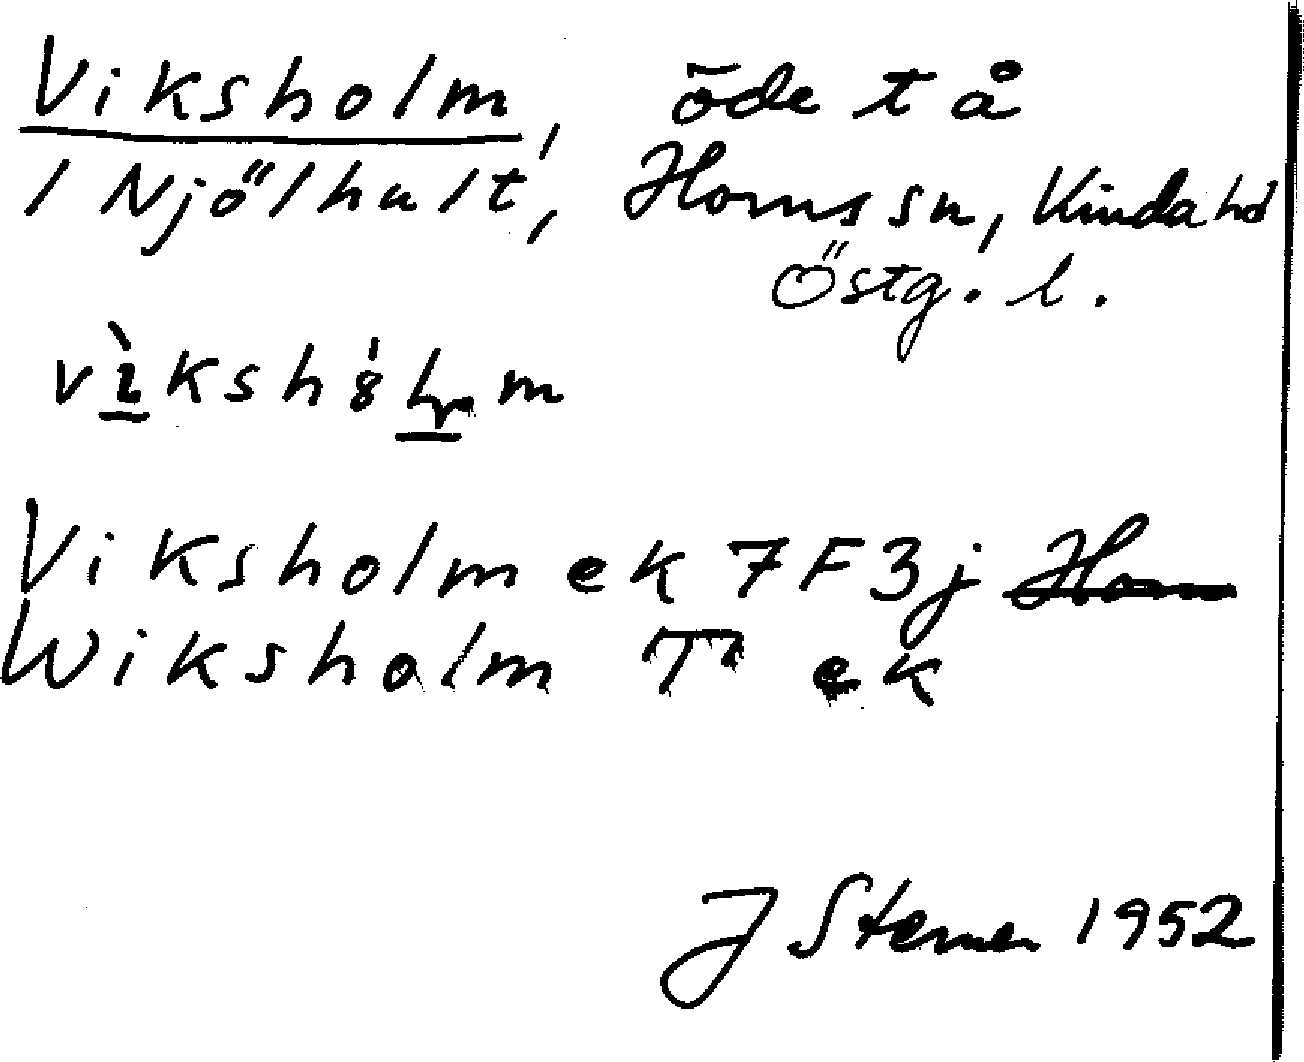 Viksholm, öde t å
1 Njölhult, Horns sn, Kinda hd
Östg. l.
Viksholm ek 7F3j Horn
Wiksholm T ek
J Sterner 1952